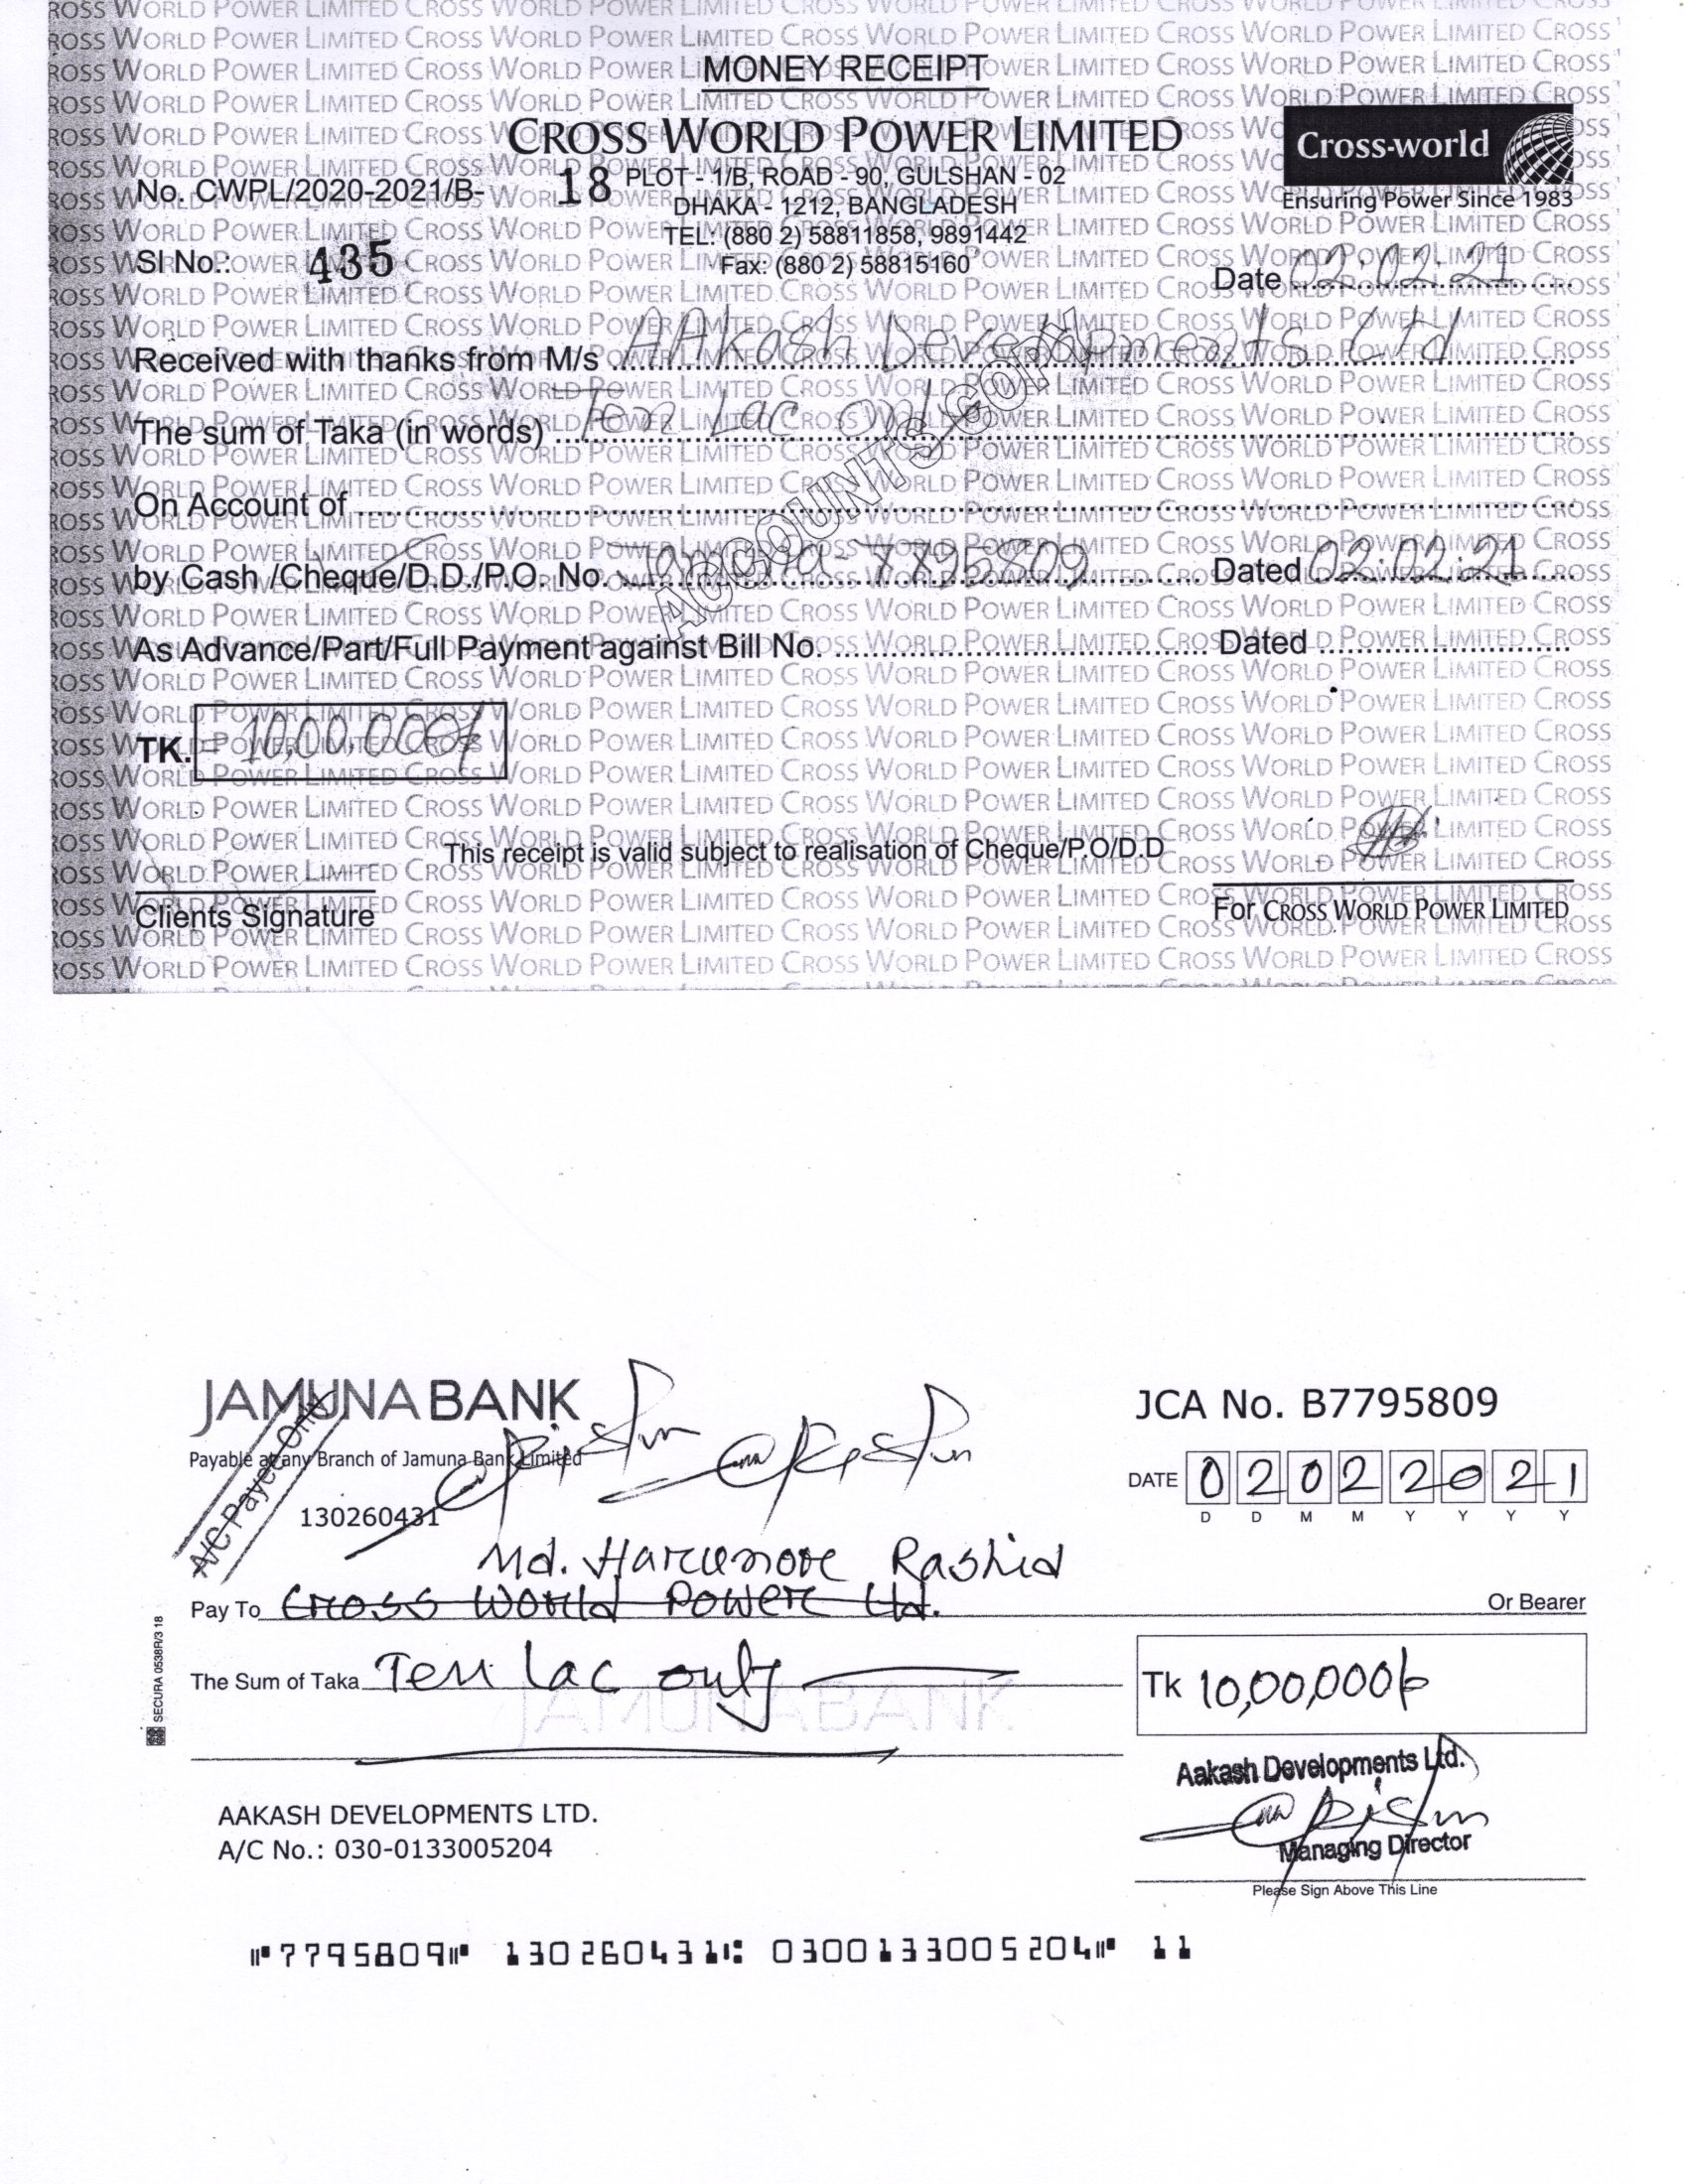 MONEY RECEIPT
CROSS WORLD POWER LIMITED
Cross-world
Ensuring Power Since 1983
No. CWPL/2020-2021/B- 18
PLOT - 1/B, ROAD - 90, GULSHAN - 02
DHAKA - 1212, BANGLADESH
TEL: (880 2) 58811858, 9891442
Fax: (880 2) 58815160
Sl No.: 435
Date 02.02.21
Received with thanks from M/s AAkash Developments Ltd
The sum of Taka (in words) Ten Lac Only
On Account of
by Cash /Cheque/D.D./P.O. No. Jamuna-7795809 Dated 02.02.21
As Advance/Part/Full Payment against Bill No. Dated
ACCOUNTS COPY
TK. = 10,00,000/-
This receipt is valid subject to realisation of Cheque/P.O/D.D
Clients Signature
For CROSS WORLD POWER LIMITED
JAMUNA BANK
JCA No. B7795809
Payable at any Branch of Jamuna Bank Limited
A/C Payee Only
DATE 02022021
D D M M Y Y Y Y
130260431
Md. Harunore Rashid
Pay To Cross World Power Ltd. Or Bearer
The Sum of Taka Ten lac only
Tk 10,00,000/-
JAMUNA BANK
SECURA 0538R/3 18
Aakash Developments Ltd.
Managing Director
Please Sign Above This Line
AAKASH DEVELOPMENTS LTD.
A/C No.: 030-0133005204
⑈7795809⑈ 130260431⑆ 0300133005204⑈ 11